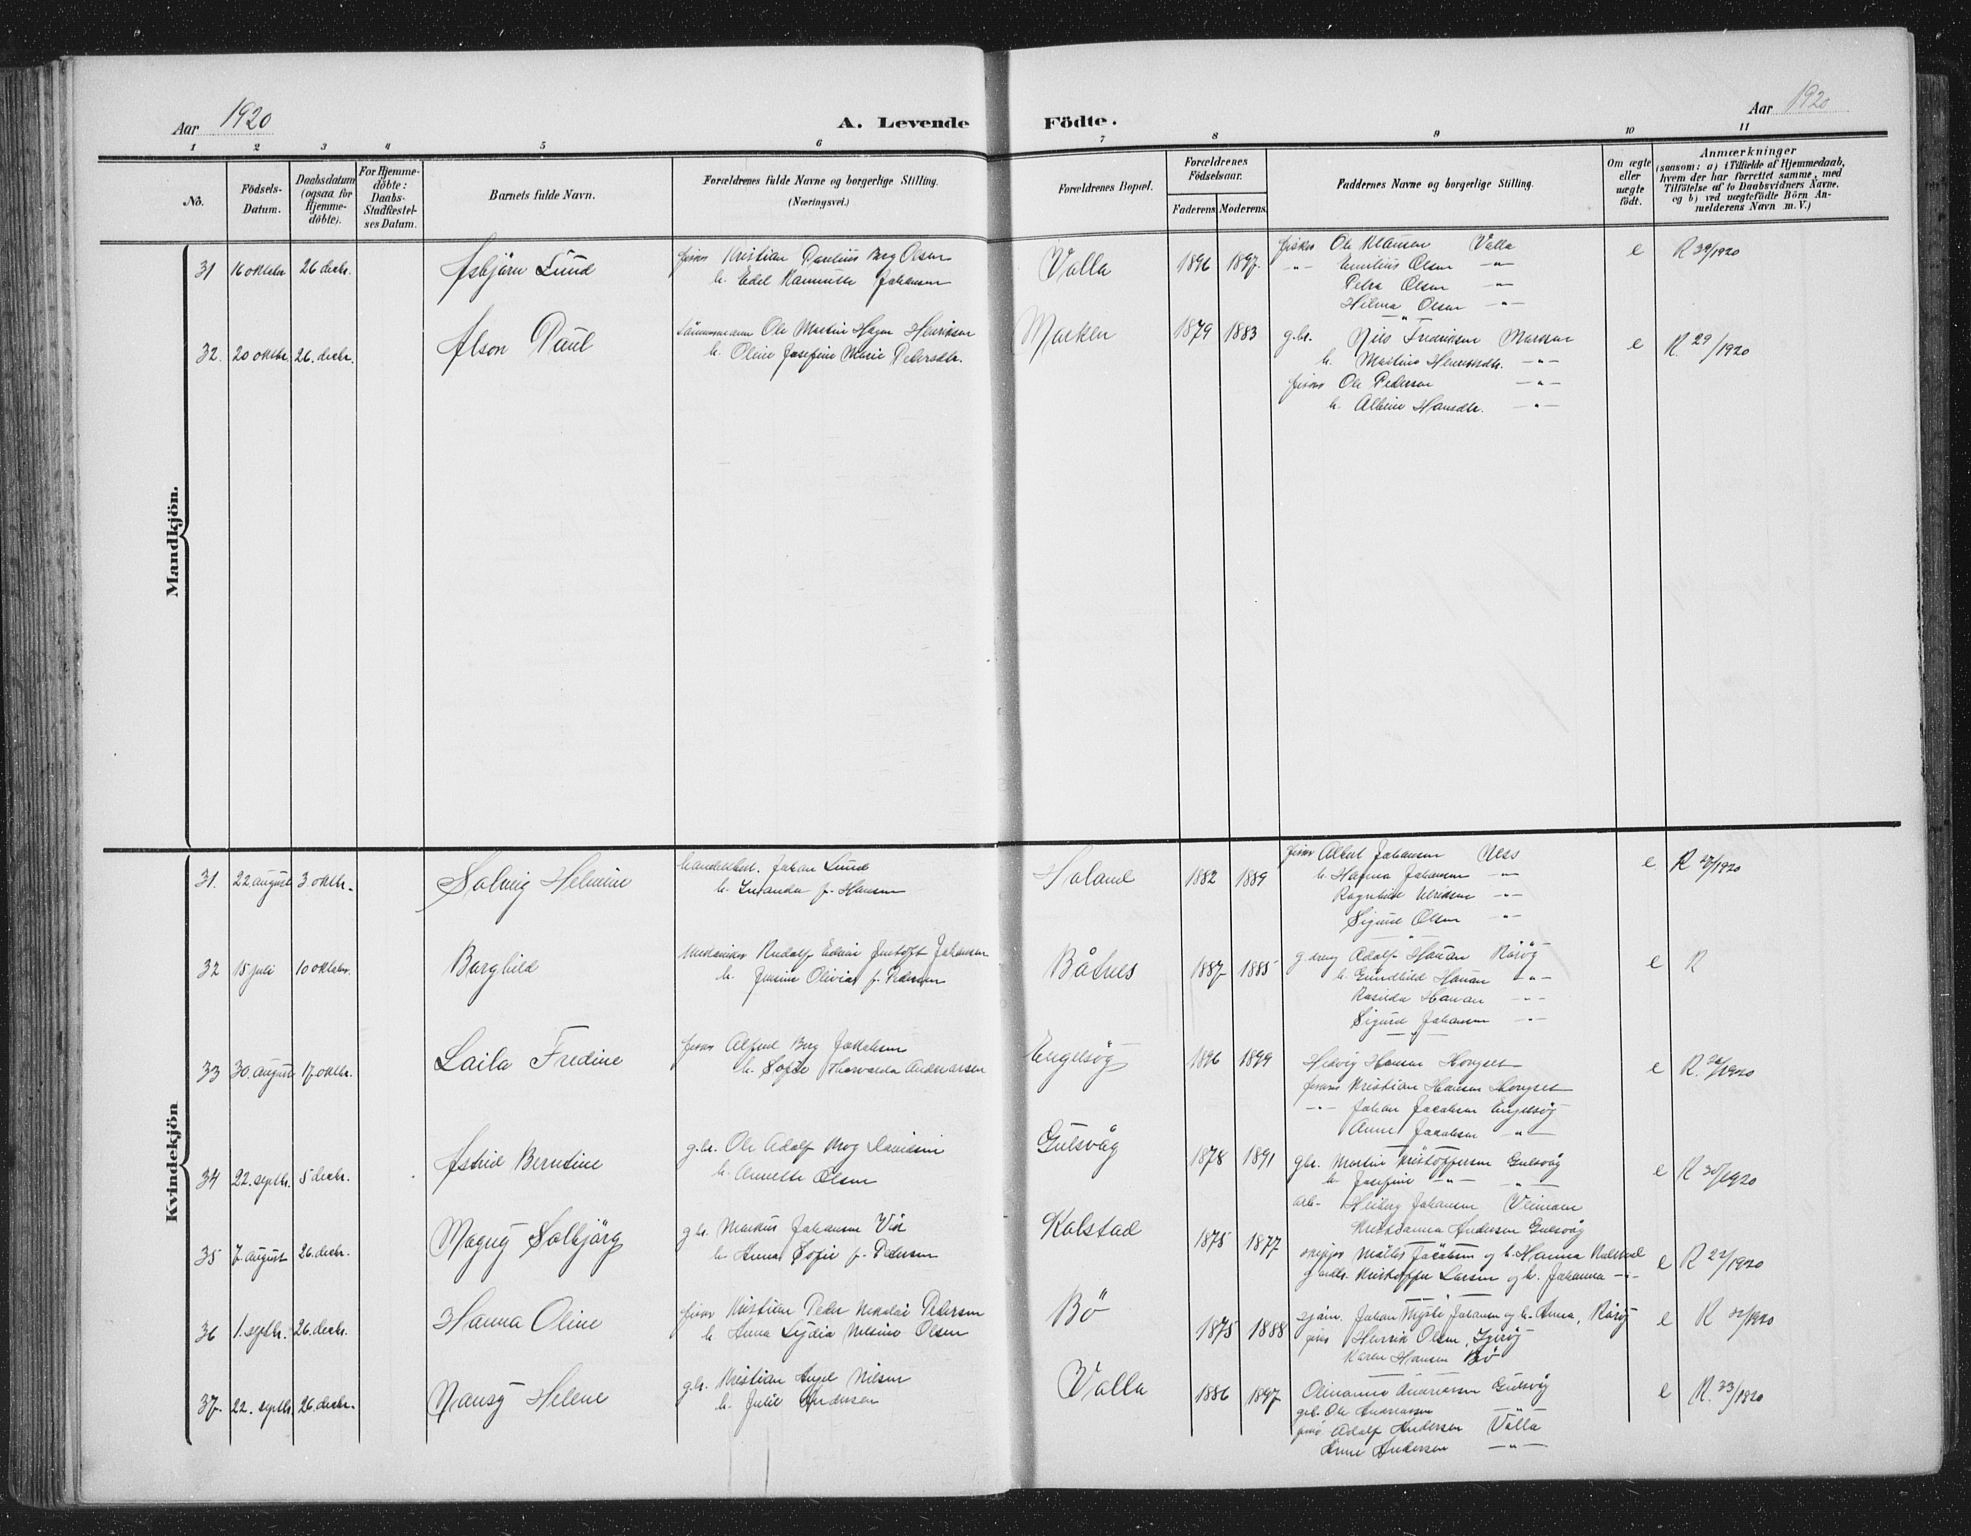 Aar 1920
A. Levende Födte.
Aar 1920
1 2 3 4 5 6 7 8 9 10 11
No.
Födsels-Datum.
Daabsdatum (ogsaa for Hjemme-döbte).
For Hjemme-döbte: Daabs-Stadfæstel-ses Datum.
Barnets fulde Navn.
Forældrenes fulde Navne og borgerlige Stilling.
(Næringsvei.)
Forældrenes Bopæl.
Forældrenes Födselsaar.
Faderens. Moderens.
Faddernes Navne og borgerlige Stilling.
Om ægte eller uægte födt.
Anmærkninger
(saasom: a) i Tilfælde af Hjemmedaab,
hvem der har forrettet samme, med
Tilföielse af to Daabsvidners Navne.
og b) ved uægtefödte Börn An-
melderens Navn m. V.)
Mandkjön.
31 16 oktbr 26 decbr. Asbjörn Lund
Kristian Berg Olsen
h. Edel Johansen
Valla 1896 1897
fisker Ole Klausen Valla
-"- Emilius Olsen -"-
Petra Olsen -"-
Helma Olsen -"-
e R 39/1920
32. 20 oktbr. 26. decbr. Alson Paul
Ole Martin Hagen Henriksen
h. Oline Josefine Marie Pedersdtr.
Marken 1879 1883
g.br. Nils Fredriksen Marken
h. -"-
fisker Ole Pedersen -"-
h. Albine Hansdtr. -"-
e R. 29/1920
Kvindekjön
31. 22 august 3. oktbr. Solveig Helmine
Johan Lund
h. f. Hansen
Holand 1882 1889
fisker Albert Johansen Næss
h. Hafma Johansen -"-
Ragnhild Ulriksen -"-
Sigurd Olsen -"-
e R 27/1920
32 15 juli 10 oktober. Borghild
Mekaniker Rudolf Edvin Johansen
h. Jensine Olivia f. Pedersen
Båtnes 1887 1885
g.dreng Adolf Hauan Rösög
h. Gundhild Hauan -"-
Rasilda Hauan -"-
Sigurd Johansen -"-
e R
33 30. august 17. oktbr. Laila Fredine
fisker Alfred Berg Jakobsen
h. Sofie Thorvalda Andreassen
Engelsög 1896 1899
Hedvig Hansen
fisker Kristian Hansen
-"- Johan Jacobsen Engelsög
Anne Jakobsen -"-
e R.
34 22. septbr. 5 decbr. Astrid Berntine
g.br. Ole Adolf Davidsen
h. Annette Olsen
Gulsvåg 1878 1891
gbr. Martin Kristoffersen Gulsvåg
h. Josefine -"- -"-
arb. Heiberg Johansen
Kristianna Andersen Gulsvåg
e R 30/1920
35 7. august 26. decbr. Magny Solbjörg
g.br. Markus Johansen
h. Anna Sofie f. Pedersen
Kolstad 1875 1877
Jacobsen og h. Hanna Kolstad
Kristoffer Larsen og h. Johanna -"-
e R 22/1920
36 1. septbr. 26. decbr. Hanna Oline
fisker Kristian Peder Nikolai Pedersen
h. Anna Lydia Olsen
Bö 1875 1888
Johan Johansen og h. Anna,
Henrik Olsen,
Karen Hansen Bö
e R
37. 22. septbr. 26. decbr. Nansy Helene
g.br. Kristian Nilsen
h. Julie Andersen
Valla 1886 1897
Andreassen Gulsvåg
gbr. Ole Andreassen
Adolf Andersen Valla
Anne Andersen -"-
e R. 33/1920